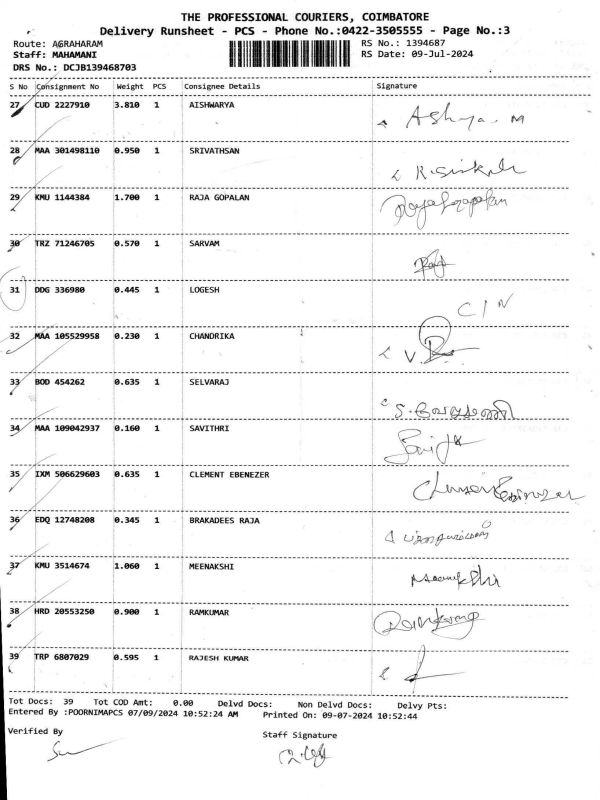 THE PROFESSIONAL COURIERS, COIMBATORE
Delivery Runsheet - PCS - Phone No.:0422-3505555 - Page No.:3
Route: AGRAHARAM RS No.: 1394687
Staff: MAHAMANI RS Date: 09-Jul-2024
DRS No.: DCJB139468703
S No Consignment No Weight PCS Consignee Details Signature
27 CUD 2227910 3.810 1 AISHWARYA
28 MAA 301498110 0.950 1 SRIVATHSAN
29 KMU 1144384 1.700 1 RAJA GOPALAN Rajagopalan
30 TRZ 71246705 0.570 1 SARVAM
31 DDG 336980 0.445 1 LOGESH C/N
32 MAA 105529958 0.230 1 CHANDRIKA
33 BOD 454262 0.635 1 SELVARAJ
34 MAA 109042937 0.160 1 SAVITHRI
35 IXM 506629603 0.635 1 CLEMENT EBENEZER
36 EDQ 12748208 0.345 1 BRAKADEES RAJA
37 KMU 3514674 1.060 1 MEENAKSHI
38 HRD 20553250 0.900 1 RAMKUMAR
39 TRP 6807029 0.595 1 RAJESH KUMAR
Tot Docs: 39 Tot COD Amt: 0.00 Delvd Docs: Non Delvd Docs: Delvy Pts:
Entered By :POORNIMAPCS 07/09/2024 10:52:24 AM Printed On: 09-07-2024 10:52:44
Verified By Staff Signature